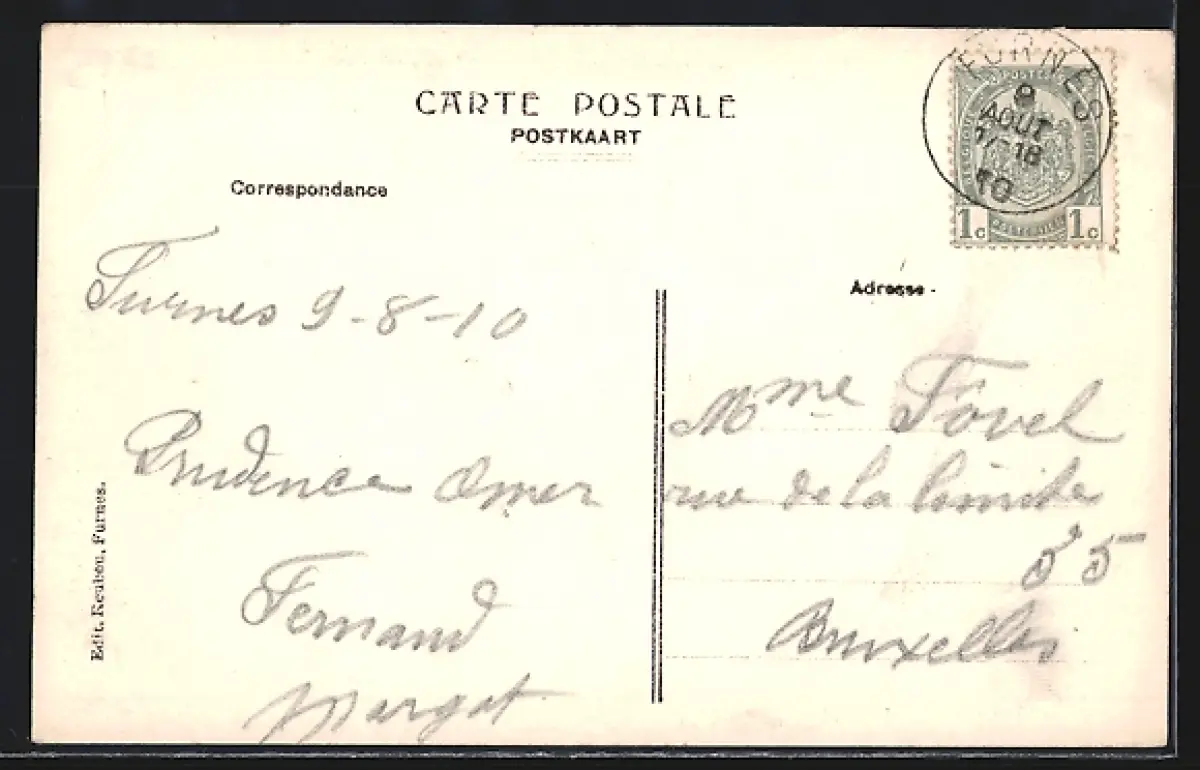 CARTE POSTALE
POSTKAART
Correspondance
Adresse
FURNES
9
AOUT
10
POSTES
1c 1c
Furnes 9-8-10
Prudence Omer
Fernand
Margot
Mme Fovel
rue de la limite
35
Bruxelles
Edit. Reubou, Furnes.